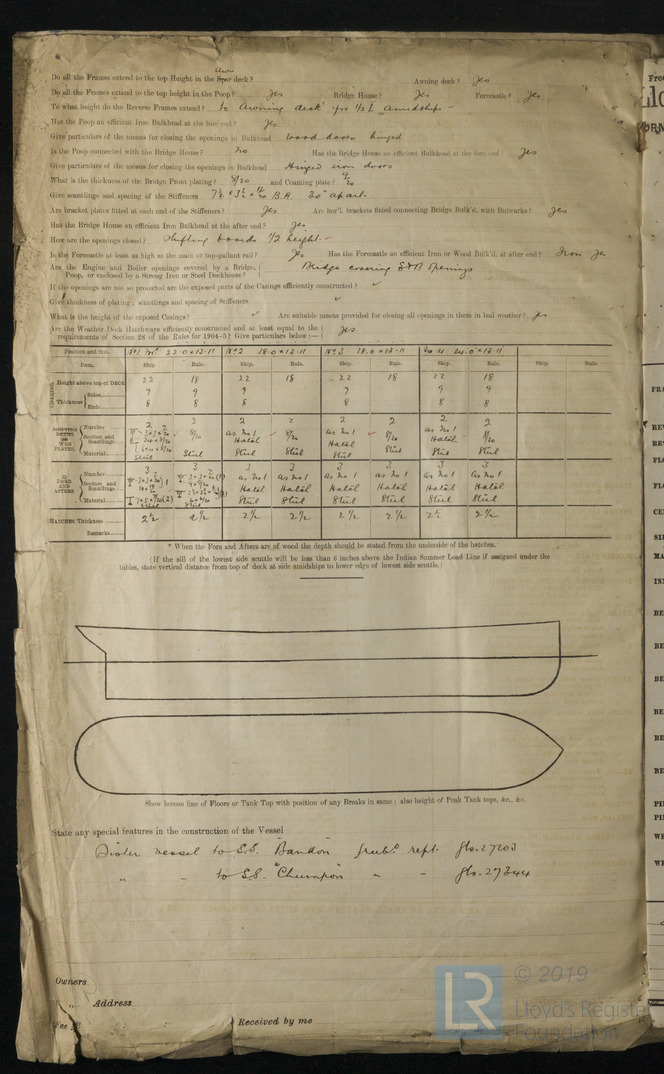 Do all the Frames extend to the top Height in the Spar deck? Awn Awning deck? Yes
Do all the Frames extend to the top height in the Poop? Yes Bridge House? Yes Forecastle? Yes
To what height do the Reverse Frames extend? to Awning deck for 1/2 L amidships
Has the Poop an efficient Iron Bulkhead at the fore end? Yes
Give particulars of the means for closing the openings in Bulkhead Wood doors hinged
Is the Poop connected with the Bridge House? No Has the Bridge House an efficient Bulkhead at the fore end? Yes
Give particulars of the means for closing the openings in Bulkhead Hinged iron doors
What is the thickness of the Bridge Front plating? 8/20 and Coaming plate? 9/20
Give scantlings and spacing of the Stiffeners B.A. 30" apart
Are bracket plates fitted at each end of the Stiffeners? Yes Are hor'l. brackets fitted connecting Bridge Bulk'd, with Bulwarks? Yes
Has the Bridge House an efficient Iron Bulkhead at the after end? Yes
How are the openings closed? Shifting boards 1/2 height
Is the Forecastle at least as high as the main or top-gallant rail? Yes Has the Forecastle an efficient Iron or Wood Bulk'd. at after end? Iron Yes
Are the Engine and Boiler openings covered by a Bridge, Poop, or enclosed by a Strong Iron or Steel Deckhouse? Bridge covering E & B openings
If the openings are not so protected are the exposed parts of the Casings efficiently constructed? ✓
Give thickness of plating; scantlings and spacing of Stiffeners ✓
What is the height of the exposed Casings? ✓ Are suitable means provided for closing all openings in them in bad weather? Yes
Are the Weather Deck Hatchways efficiently constructed and at least equal to the requirements of Section 28 of the Rules for 1904-5? Give particulars below:— Yes
Position and size. No 1 22.0 × 13-11 No 2 28.0 × 13-11 No 3 28.0 × 13-11 No 4 24.0 × 13-11
Item. Ship. Rule. Ship. Rule. Ship. Rule. Ship. Rule. Ship. Rule.
COAMING. Height above top of DECK 22 18 22 18 22 18 22 18
Thickness Sides 9 9 9 9 9 9
Ends 8 8 8 8 8 8
Number 2 2 2 2 2 2 2 2
Section and Scantlings 8/20 as No 1 Hatch 8/20 as No 1 Hatch 8/20 as No 1 Hatch 8/20
Material Steel Steel Steel Steel Steel Steel Steel Steel
FORE AND AFTERS. Number 3 3 3 3 3 3 3 3
Section and Scantlings as No 1 Hatch as No 1 Hatch as No 1 Hatch as No 1 Hatch as No 1 Hatch as No 1 Hatch
Material Steel Steel Steel Steel Steel Steel Steel Steel
HATCHES Thickness 2½ 2½ 2½ 2½ 2½ 2½ 2½ 2½
Remarks
* When the Fore and Afters are of wood the depth should be stated from the underside of the hatches.
(If the sill of the lowest side scuttle will be less than 6 inches above the Indian Summer Load Line if assigned under the
tables, state vertical distance from top of deck at side amidships to lower edge of lowest side scuttle.)
Show hereon line of Floors or Tank Top with position of any Breaks in same; also height of Peak Tank tops, &c., &c.
State any special features in the construction of the Vessel
Sister vessel to S.S. "Bandon" frebd. rept. Gls. 27203
" - to S.S. "Chumpon" " - Gls. 27344
Owners
" Address
Fee £ Received by me
LR © 2019
Lloyd's Register
Foundation